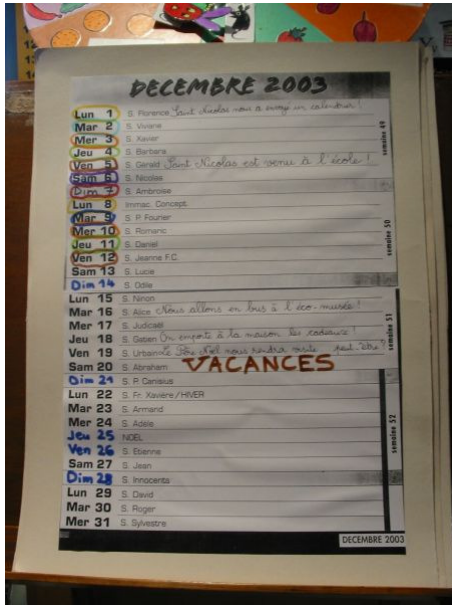 DECEMBRE 2003
Lun 1 S. Florence Saint Nicolas nous a envoyé un calendrier !
Mar 2 S. Viviane
Mer 3 S. Xavier
Jeu 4 S. Barbara
Ven 5 S. Gérald Saint Nicolas est venu à l'école !
Sam 6 S. Nicolas
Dim 7 S. Ambroise
Lun 8 Immac. Concept.
Mar 9 S. P. Fourier
Mer 10 S. Romaric
Jeu 11 S. Daniel
Ven 12 S. Jeanne F.C.
Sam 13 S. Lucie
Dim 14 S. Odile
Lun 15 S. Ninon
Mar 16 S. Alice Nous allons en bus à l'éco-musée !
Mer 17 S. Judicaël
Jeu 18 S. Gatien On emporte à la maison les cadeaux !
Ven 19 S. Urbain Le Père Noël nous rendra visite peut-être ?
Sam 20 S. Abraham VACANCES
Dim 21 S. P. Canisius
Lun 22 S. Fr. Xavière / HIVER
Mar 23 S. Armand
Mer 24 S. Adèle
Jeu 25 NOEL
Ven 26 S. Etienne
Sam 27 S. Jean
Dim 28 S. Innocents
Lun 29 S. David
Mar 30 S. Roger
Mer 31 S. Sylvestre
semaine 49
semaine 50
semaine 51
semaine 52
DECEMBRE 2003